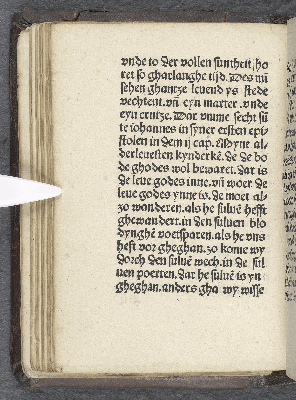 vnde to der vollen suntheit, ho
ret so gharlanghe tijd. Des mī
schen ghantze leuend ys stede
vechtent. vn̄ eyn marter. vnde
eyn crutze. Dar vmme secht sū
te iohannes in syner ersten epi
stolen in dem ij cap. Myne al-
derleuesten kynderkē. de de bo
de ghodes wol bewaret. dar is
de leue godes inne. vn̄ woer de
leue godes ynne is. de moet al-
zo wanderen. als he suluē hefft
ghewandert. in den suluen blo
dynghē voetsparen. als he vns
heft vor gheghan. zo kome wy
dorch den suluē wech. in de sul
uen poerten. dar he suluē is yn
gheghan. anders gha wy wisse